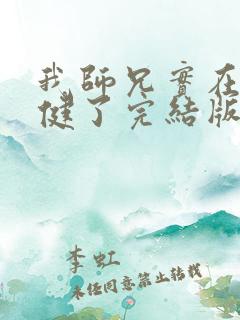 我師兄實在
健了完結版
李虹
未經同意禁止轉載